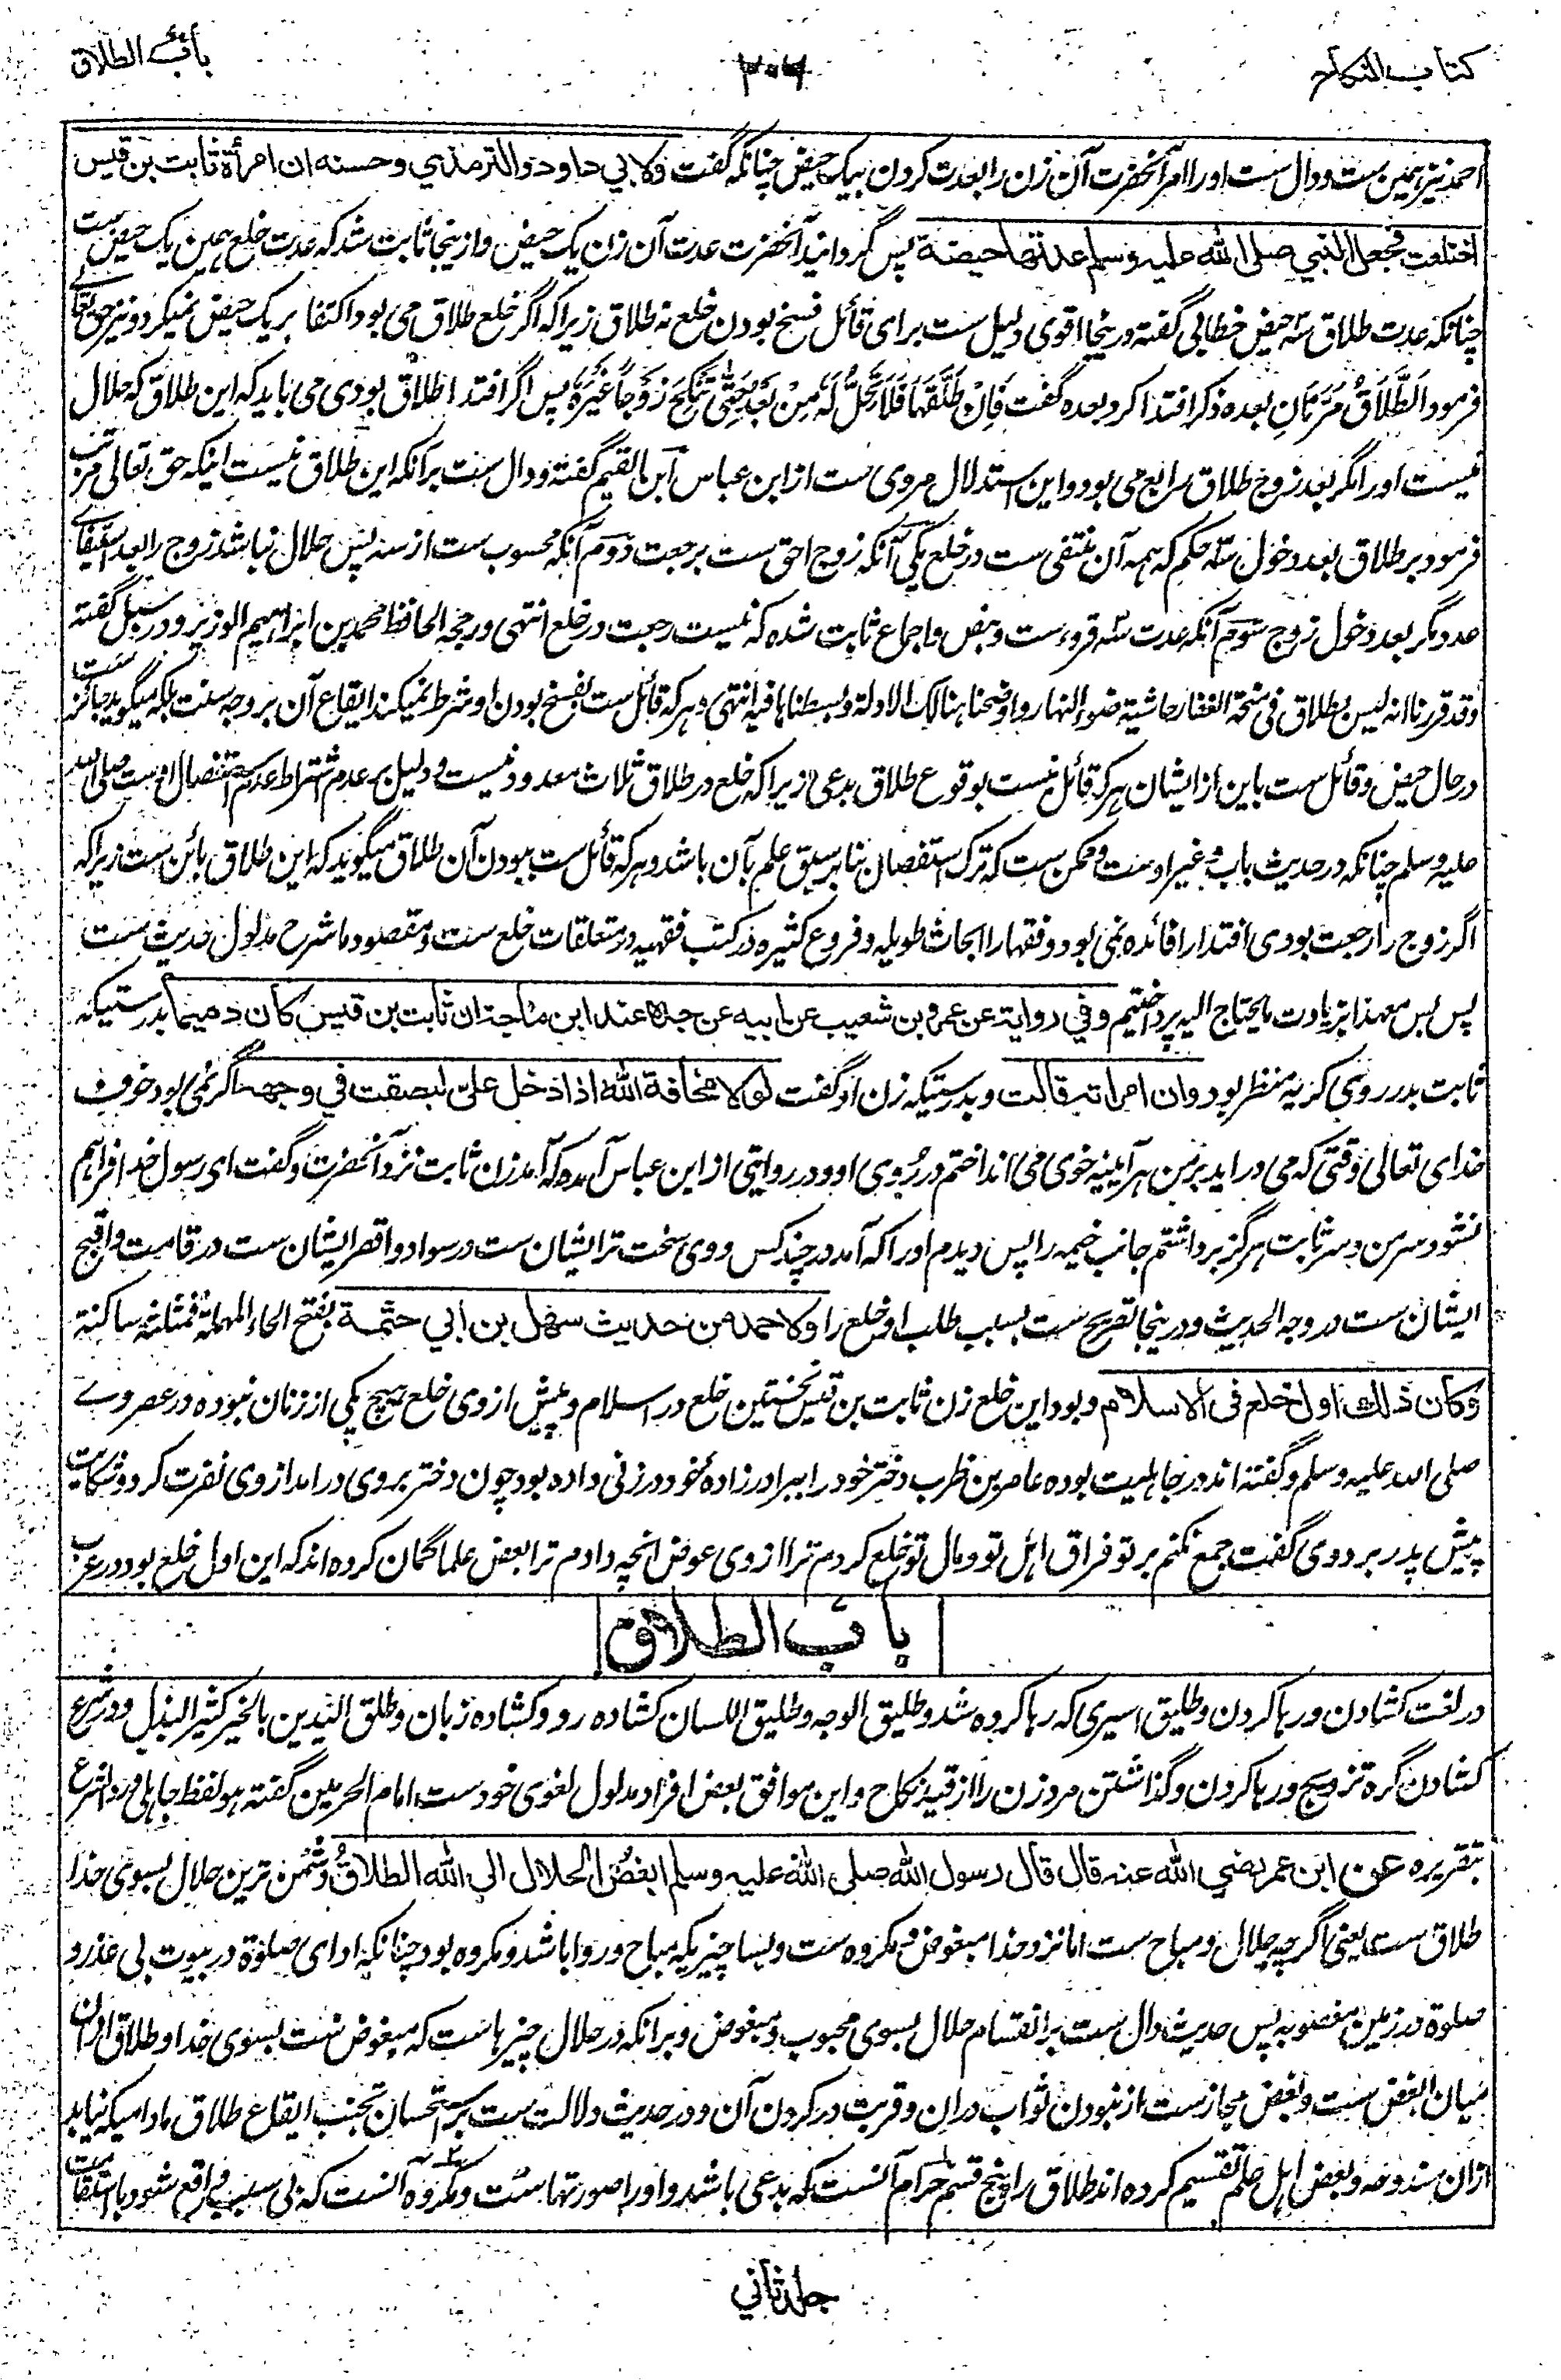 کتاب النکاح
۳۰۶
باب الطلاق
احمد نیز همین ست و دال ست اورا امر آنحضرت آن زن را بعدت کردن بیک حیض چنانکه گفت ولابی داود والترمذي وحسنه ان امرأة ثابت بن قیس
اختلعت فجعل النبي صلی الله علیه وسلم عدتها حیضة پس گردانید آنحضرت عدت آن زن یک حیض و ازینجا ثابت شد که عدت خلع همین یک حیض ست
چنانکه عدت طلاق سه حیض خطابی گفته درینجا اقوی دلیل ست برای قائل فسخ بودن خلع نه طلاق زیراکه اگر خلع طلاق می بود اکتفا بر یک حیض نمیکرد و نیز حق تعالے
فرمود اَلطَّلَاقُ مَرَّتَانِ بعده ذکر افتدا کرد بعده گفت فَاِنْ طَلَّقَهَا فَلَا تَحِلُّ لَهُ مِنْ بَعْدُ حَتّٰی تَنْکِحَ زَوْجًا غَیْرَهُ پس اگر افتدا طلاق بودی می باید که این طلاق که حلال
نیست اورا مگر بعد زوج طلاق رابع می بود و این استدلال مروی ست از ابن عباس ابن القیم گفته و دال ست برآنکه این طلاق نیست اینکه حق تعالی مرتب
فرمود بر طلاق بعد دخول سه حکم که همه آن منتفی ست در خلع یکی آنکه زوج احق ست برجعت دوم آنکه محسوب ست از سه پس حلال نباشد زوج را بعد استیفاے
عدد مگر بعد دخول زوج سوم آنکه عدت سه قروء ست و بنص و اجماع ثابت شده که نیست رجعت در خلع انتهی ورجحه الحافظ محمد بن ابراهیم الوزیر و در سبل گفته
وقد قررنا انه لیس بطلاق فی منحة الغفار حاشیة ضوء النهار واوضحنا هنالک الادلة وبسطناها فیه انتهی و هر که قائل ست بفسخ بودن او شرط نمیکند ایقاع آن بر وجه سنت بلکه میگوید جائز ست
در حال حیض و قائل ست باین از ایشان هر که قائل نیست بوقوع طلاق بدعی زیراکه خلع در طلاق ثلاث معدود نیست و دلیل بر عدم اشتراط عدم استفصال اوست صلی الله
علیه وسلم چنانکه در حدیث باب و غیر اوست و ممکن ست که ترک استفصال بنابر سبق علم بآن باشد و هر که قائل ست ببودن آن طلاق میگوید که این طلاق بائن ست زیراکه
اگر زوج را رجعت بودی افتدا را فائده نمی بود و فقها را ابحاث طویله و فروع کثیره در کتب فقهیه در متعلقات خلع ست و مقصود ما شرح مدلول حدیث ست
پس بس معهذا بزیادت ما یحتاج الیه پرداختیم وفي روایة عن عمرو بن شعیب عن ابیه عن جده عند ابن ماجة ان ثابت بن قیس کان دمیما بدرستیکه
ثابت بدر روی کریه منظر بود وان امراته قالت و بدرستیکه زن او گفت لولا مخافة الله اذا دخل علي لبصقت في وجهه اگر نمی بود خوف
خدای تعالی وقتی که می در اید بر من هر آیینه خوی می انداختم در روی او و در روایتی از ابن عباس آمده که آمد زن ثابت نزد آنحضرت و گفت ای رسول خدا فراهم
نشود سر من و سر ثابت هرگز برداشتم جانب خیمه را پس دیدم اورا که آمد در چند کس و وی سخت تر ایشان ست در سواد و اقصر ایشان ست در قامت و اقبح
ایشان ست در وجه الحدیث و درینجا تصریح ست بسبب طلب او خلع را ولاحمد من حدیث سهل بن ابي حثمة بفتح الحاء المهملة فمثلثة ساکنة
وکان ذلك اول خلع فی الاسلام و بود این خلع زن ثابت بن قیس نخستین خلع در اسلام و پیش از وی خلع هیچ یکی از زنان نبوده در عصر وے
صلی الله علیه وسلم و گفته اند در جاهلیت بوده عامر بن ظرب دختر خود را ببرادرزاده خود در زنی داده بود چون دختر بر وی در امد از وی نفرت کرد و شکایت
پیش پدر برد وی گفت جمع نکنم بر تو فراق اهل تو و مال تو خلع کردم ترا از وی عوض انچه دادم ترا بعض علما گمان کرده اند که این اول خلع بود در عرب
باب الطلاق
در لغت کشادن و رها کردن و طلیق اسیری که رها کرده شد و طلیق الوجه و طلیق اللسان کشاده رو و کشاده زبان و طلق الیدین بالخیر کثیر البذل و در شرع
کشادن گره تزویج و رها کردن و گذاشتن مرد زن را از قید نکاح و این موافق بعض افراد مدلول لغوی خود ست امام الحرمین گفته هو لفظ جاهلی ورد الشرع
بتقریره عن ابن عمر رضي الله عنه قال قال رسول الله صلی الله علیه وسلم ابغض الحلال الی الله الطلاق دشمن ترین حلال بسوی خدا
طلاق ست یعنی اگرچه حلال و مباح ست اما نزد خدا مبغوض و مکروه ست و بسا چیز یکه مباح و روا باشد و مکروه بود چنانکه ادای صلوة در بیوت بی عذر و
صلوة در زمین مغصوبه پس حدیث دال ست بر انقسام حلال بسوی محبوب و مبغوض و برانکه در حلال چیزهاست که مبغوض ست بسوی خدا و طلاق ازان
میان ابغض ست و بغض مجاز ست از نبودن ثواب دران و قربت در کردن آن و در حدیث دلالت ست بر استحسان تجنب ایقاع طلاق مادامیکه نیابد
ازان مندوحه و بعض اهل علم تقسیم کرده اند طلاق را پنج قسم حرام آنست که بدعی باشد و اورا صورتهاست و مکروه آنست که بی سبب واقع شود با استقامت
جلد ثاني